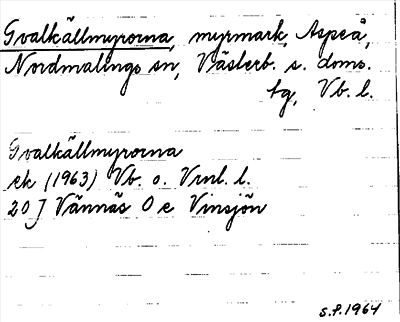 Gvalkällmyrorna, myrmark, Aspeå,
Nordmalings sn, Västerb. s. doms.
tg, Vb. l.
Gvalkällmyrorna
ek (1963) Vb. o. Vnl. l.
20 J Vännäs O e Vinsjön
S.P. 1964